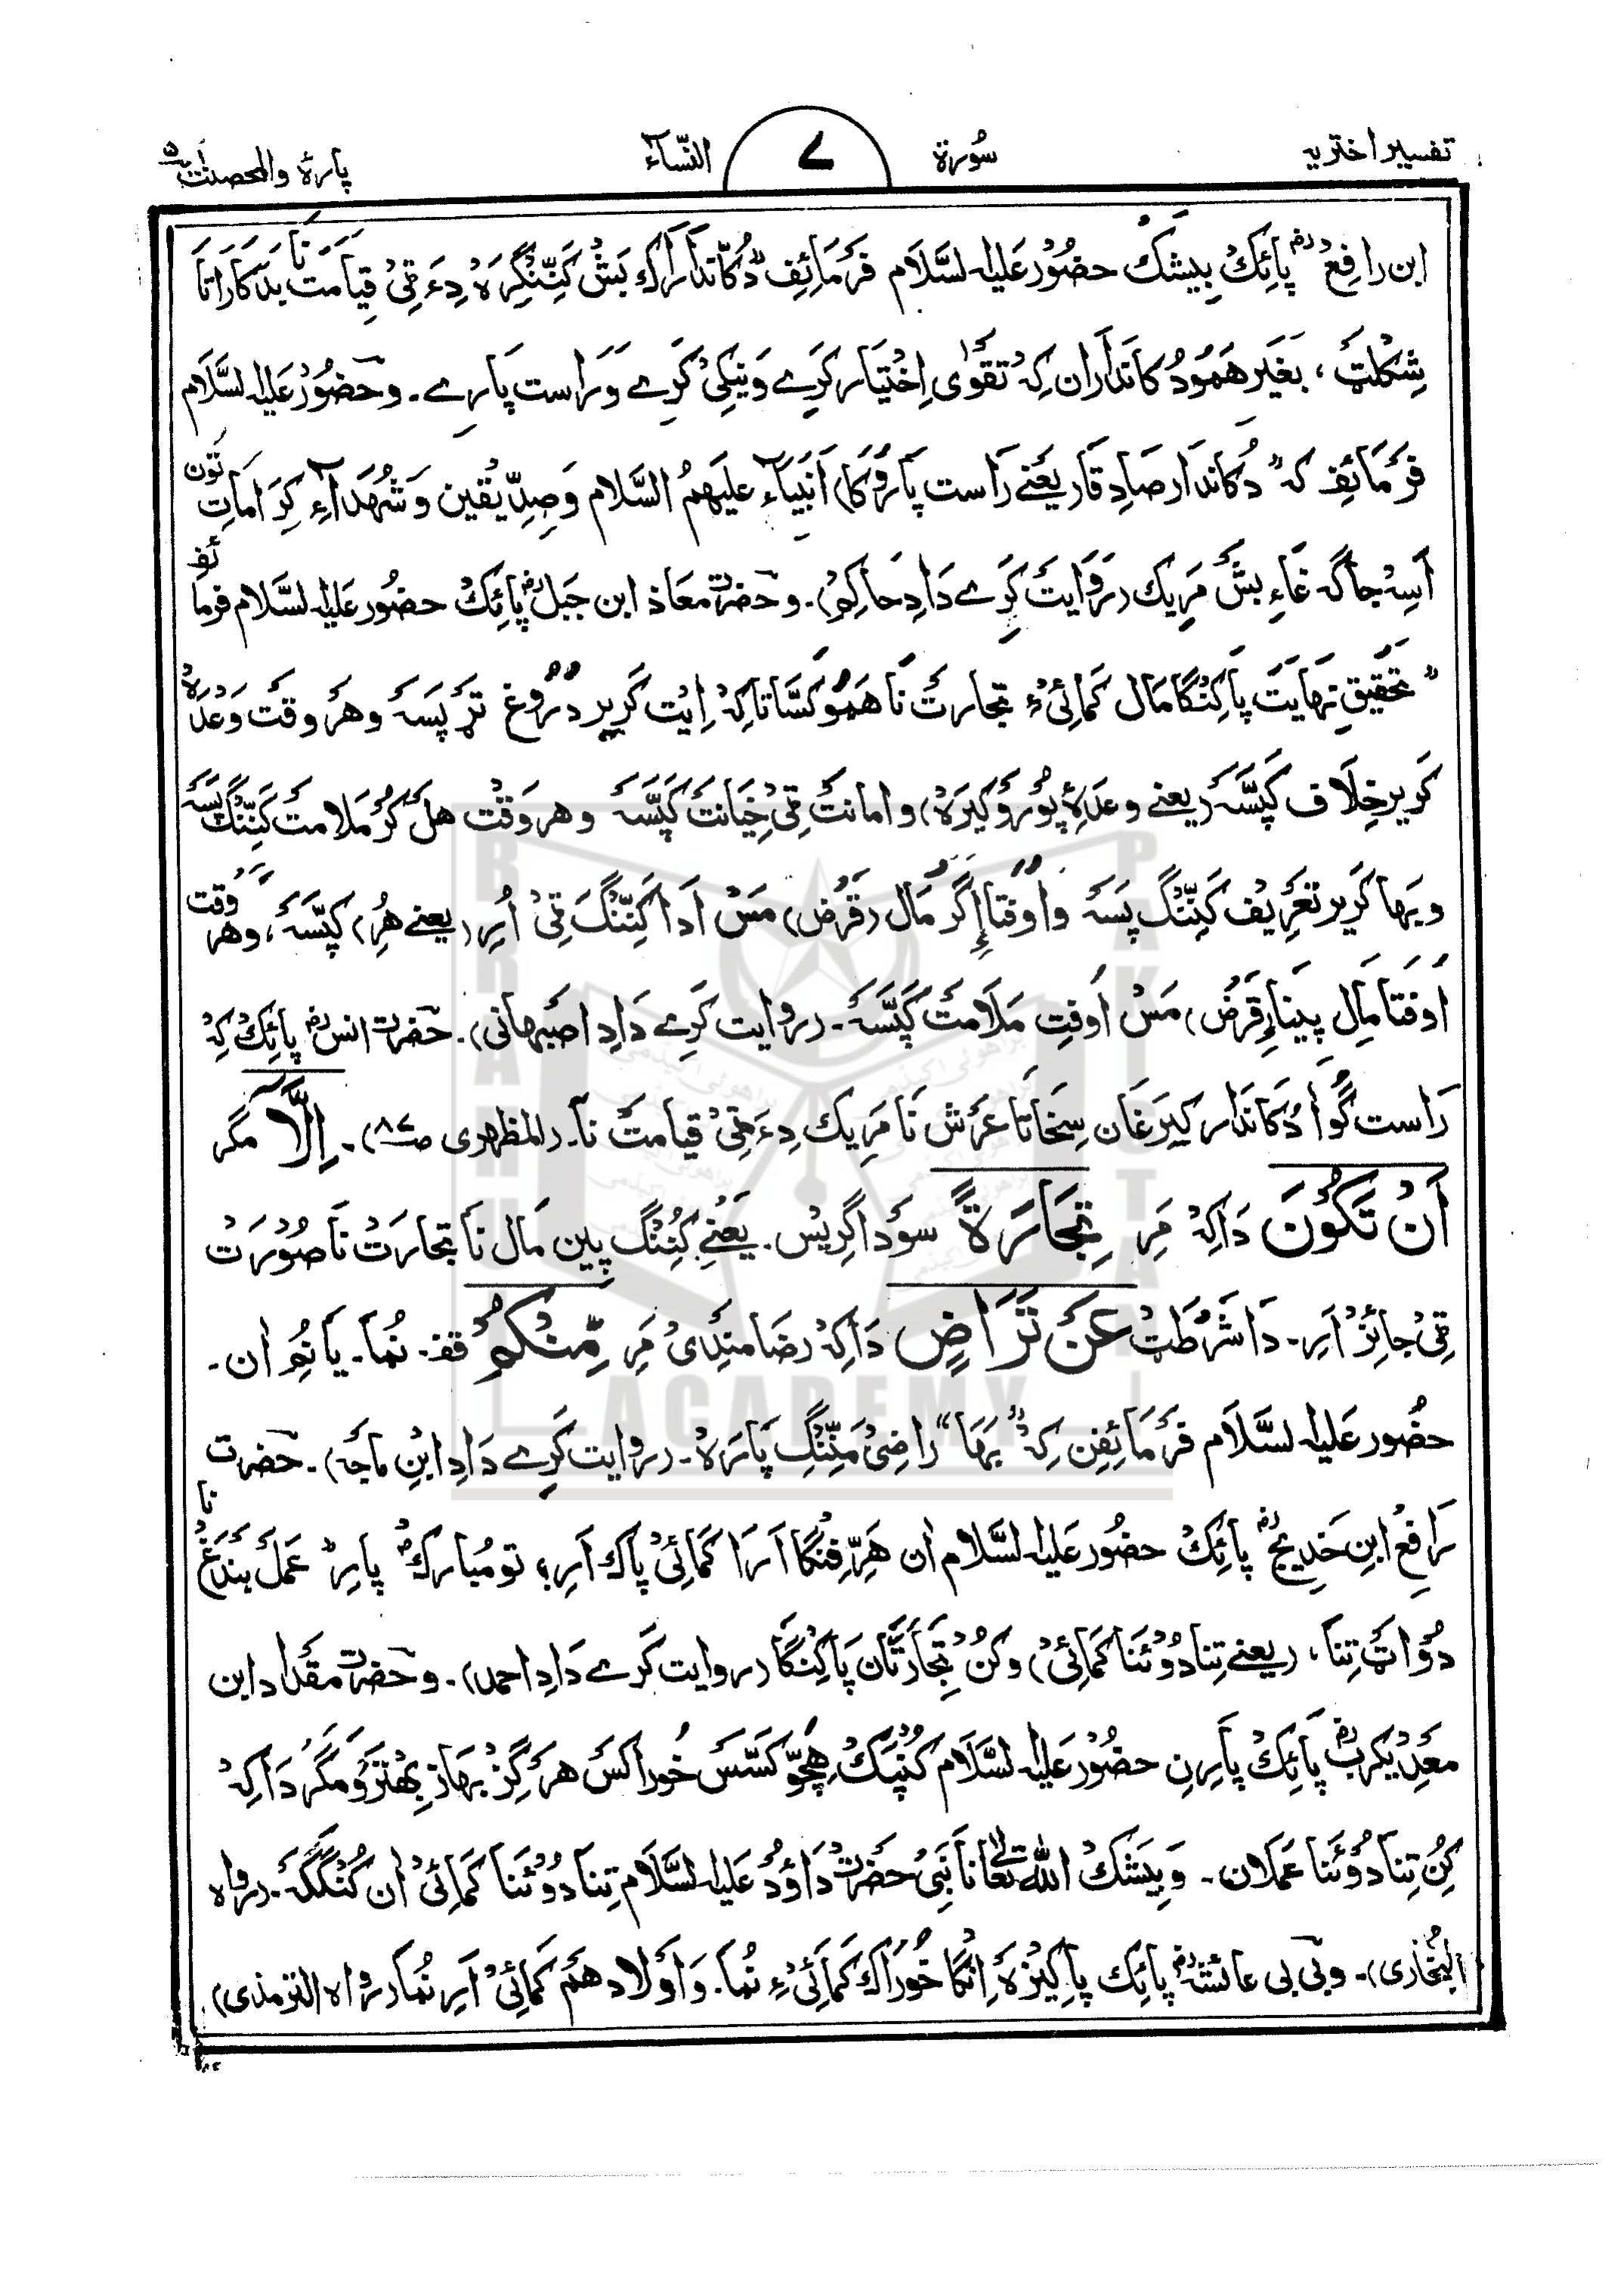 تفسیر اختریہ
سُورۃ
۷
النّسآء
پارۂ والمحصنٰت ۵
ابن رافِعؓ پائِکْ بِیشک حضُور عَلیہ لسَّلَام فَرمَائِف "دُکَانْدَارَاک بَشْ کَنِّنْگِرَہ دِءَ ٹِیْ قِیامَتْ نَا بَدکَارَاتَا
شِکْلَٹ، بَغَیر ھَمُودُکانَدارَان کِہ تَقویٰ اِخْتِیَار کَرِے وَنیکی کَرِے وَرَاست پَارے۔ وحَضُوْر عَلیہ لسَّلَام
فَرمَائِف کہ "دُکاندَار صَادِقَا (یَعنے رَاست پَارُوکَا) اَنبِیَآء عَلَیہِمُ السَّلام وَصِدِّیقِین وَ شُہَدَآءِ کِرَامَاتِ تون
اَسِہ جاگہ غَاءِ بَشْ مَرِیک (رِوَایَت کَرِے دَادِ حَاکِم)۔ وحضرت معَاذ ابن جَبَلؓ پَائِکْ حضُور عَلیہ لسَّلام فرمائف
"تحقیقِ نِہایَت پَاکِنگا مَال کَمائیْ ءِ تجارتْ نَا ھَمُو کَسَّاتا کِہ اِیْت کَرِیر دُرُوغ تَرپَسَہ وھَر وقتْ وَعْدَہ
کَرِیر خِلَاف کَپَّسَہ (یعنے وعدہ پُورُو کیرَہ) وامانتْ ٹِیْ خِیَانَتْ کَپَّسَہ وھروَقْت ھل کَرُ مَلامت کَنِّنْگ پَسَہ
وبہا کَرِیر تَعْرِیف کَنِّنْگ پَسَہ وَاوفتا اِگر مَال (قرض) مَسْ اَدَا کَنِّنْگ ٹِیْ اُرِ (یعنے ھُر) کَپَّسَہ، وھر وقت
اوفتا مَالِ پِینَا (قَرض) مَسْ اُوفتِ مَلَامت کَپَّسَہ۔ (روایت کَرِے دَادِ اصبہانی)۔ حضرت انسؓ پَائِکْ کِہ
رَاست گوَا دُکاندَار کَیرَغان سِخَاتا عَرْش نَا مَرِیک دِءَ ٹِیْ قیامَت نَا۔ (المظہری صـ۸۷)۔ اِلَّآ مگر
اَنْ تَکُوْنَ دَاکِہ مَرِ تِجَارَۃً سَودَاگَرِیس۔ یَعنے کُنِنگ پِین مَال نَا تِجارَتْ نَا صُوْرَتْ
ٹِیْ جائِز اَرِ۔ دَا شَرْطَتْ عَنْ تَرَاضٍ دَاکِہ رضَا مَندِیْ مَرِ مِّنْکُمْ قف۔ نُمَا۔ یَا نُمِ اَن۔
حضُور عَلیہ لسَّلَام فَرمَائِفِن کِہ "بَہَا" رَاضِیْ مَنِّنْگ پَارَہ۔ (روایت کَرِے دَادِ ابنِ ماجَہ)۔ حضرت
رَافِعُ ابنِ خَدِیجؓ پَائِکْ حضُور عَلیہ لسَّلام اَن ھَرِّفِنگا اَرَا کَمائیْ پاک اَرِ؟ تو مُبارکؐ پَارِ "عَمَل بَنْدَغ نا
دُوَاتِ تِنَا، (یعنے تِنا دُوئنا کَمائیْ) وکُنْ تِجَارَتَان پَاکِنگا (روایت کَرے دَادِ احمد)۔ وحضرت مقدَاد ابن
مَعدِیکَربؓ پَائِکْ پَارِن حضُور عَلیہ لسَّلَام کُنْپَک ھِچّو کَسَس خُوراکَس ھَر گِز بہاز بِہتَرو مگر دَاکِہ
کُن تِنا دُوئنا عَملان۔ وَبیشک اللہ تَعالیٰ نَا نَبِیْ حضرت دَاؤدُ عَلیہ لسَّلَام تِنا دُوئنَا کَمائیْ اَن کُنگَکَہ۔ (رواہ
البُخاری)۔ وبی بی عائشہؓ پَائِک پَاکِیزہ اِنْگا خُورَاک کَمائیْ ءِ نُمَا۔ وَاَولَاد ھَم کَمائیْ اَرِ نُما (رواہ الترمذی)۔
BRAHUI
ACADEMY
PAKISTAN